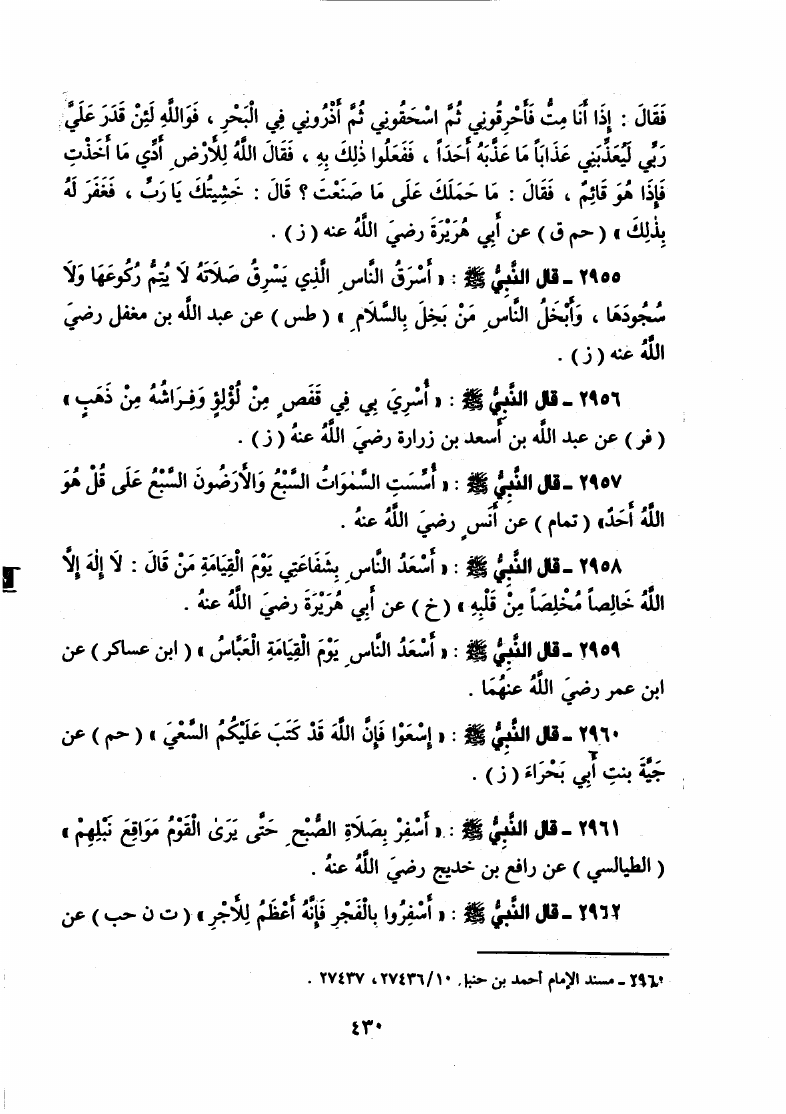 فَقَالَ : إِذَا أَنَا مِتُّ فَأَحْرِقُونِي ثُمَّ اسْحَقُونِي ثُمَّ أَذْرُونِي فِي الْبَحْرِ ، فَوَاللَّهِ لَئِنْ قَدَرَ عَلَيَّ
رَبِّي لَيُعَذِّبَنِي عَذَاباً مَا عَذَّبَهُ أَحَدَاً ، فَفَعَلُوا ذٰلِكَ بِهِ ، فَقَالَ اللَّهُ لِلْأَرْضِ أَدِّي مَا أَخَذْتِ
فَإِذَا هُوَ قَائِمٌ ، فَقَالَ : مَا حَمَلَكَ عَلَى مَا صَنَعْتَ ؟ قَالَ : خَشِيتُكَ يَا رَبِّ ، فَغَفَرَ لَهُ
بِذٰلِكَ » ( حم ق ) عن أَبِي هُرَيْرَةَ رضيَ اللَّهُ عنه ( ز ) .
٢٩٥٥ ـ قال النَّبِيُّ ﷺ : « أَسْرَقُ النَّاسِ الَّذِي يَسْرِقُ صَلَاتَهُ لَا يُتِمُّ رُكُوعَهَا وَلَا
سُجُودَهَا ، وَأَبْخَلُ النَّاسِ مَنْ بَخِلَ بِالسَّلَامِ » ( طس ) عن عبد اللَّه بن مغفل رضيَ
اللَّهُ عنه ( ز ) .
٢٩٥٦ ـ قال النَّبِيُّ ﷺ : « أُسْرِيَ بِي فِي قَفَصٍ مِنْ لُؤْلِؤٍ وَفِرَاشُهُ مِنْ ذَهَبٍ »
( فر ) عن عبد اللَّه بن أَسعد بن زرارة رضيَ اللَّهُ عنهُ ( ز ) .
٢٩٥٧ ـ قال النَّبِيُّ ﷺ : « أُسِّسَتِ السَّمٰوَاتُ السَّبْعُ وَالْأَرَضُونَ السَّبْعُ عَلَى قُلْ هُوَ
اللَّهُ أَحَدٌ» ( تمام ) عن أَنَسٍ رضيَ اللَّهُ عنهُ .
٢٩٥٨ ـ قال النَّبِيُّ ﷺ : « أَسْعَدُ النَّاسِ بِشَفَاعَتِي يَوْمَ الْقِيَامَةِ مَنْ قَالَ : لَا إِلٰهَ إِلَّا
اللَّهُ خَالِصاً مُخْلِصَاً مِنْ قَلْبِهِ » ( خ ) عن أَبِي هُرَيْرَةَ رضيَ اللَّهُ عنهُ .
٢٩٥٩ ـ قال النَّبِيُّ ﷺ : « أَسْعَدُ النَّاسِ يَوْمَ الْقِيَامَةِ الْعَبَّاسُ » ( ابن عساكر ) عن
ابن عمر رضيَ اللَّهُ عنهُمَا .
٢٩٦٠ ـ قال النَّبِيُّ ﷺ : « إِسْعَوْا فَإِنَّ اللَّهَ قَدْ كَتَبَ عَلَيْكُمُ السَّعْيَ » ( حم ) عن
حَبيَّةَ بنتِ أَبِي بَحْرَاءَ ( ز ) .
٢٩٦١ ـ قال النَّبِيُّ ﷺ : « أَسْفِرْ بِصَلَاةِ الصُّبْحِ حَتَّى يَرَىٰ الْقَوْمُ مَوَاقِعَ نَبْلِهِمْ »
( الطيالسي ) عن رافع بن خديج رضيَ اللَّهُ عنهُ .
٢٩٦٢ ـ قال النَّبِيُّ ﷺ : « أَسْفِرُوا بِالْفَجْرِ فَإِنَّهُ أَعْظَمُ لِلْأَجْرِ » ( ت ن حب ) عن
٢٩٦٠ ـ مسند الإمام أحمد بن حنبل ٢٧٤٣٦/١٠ ، ٢٧٤٣٧ .
٤٣٠